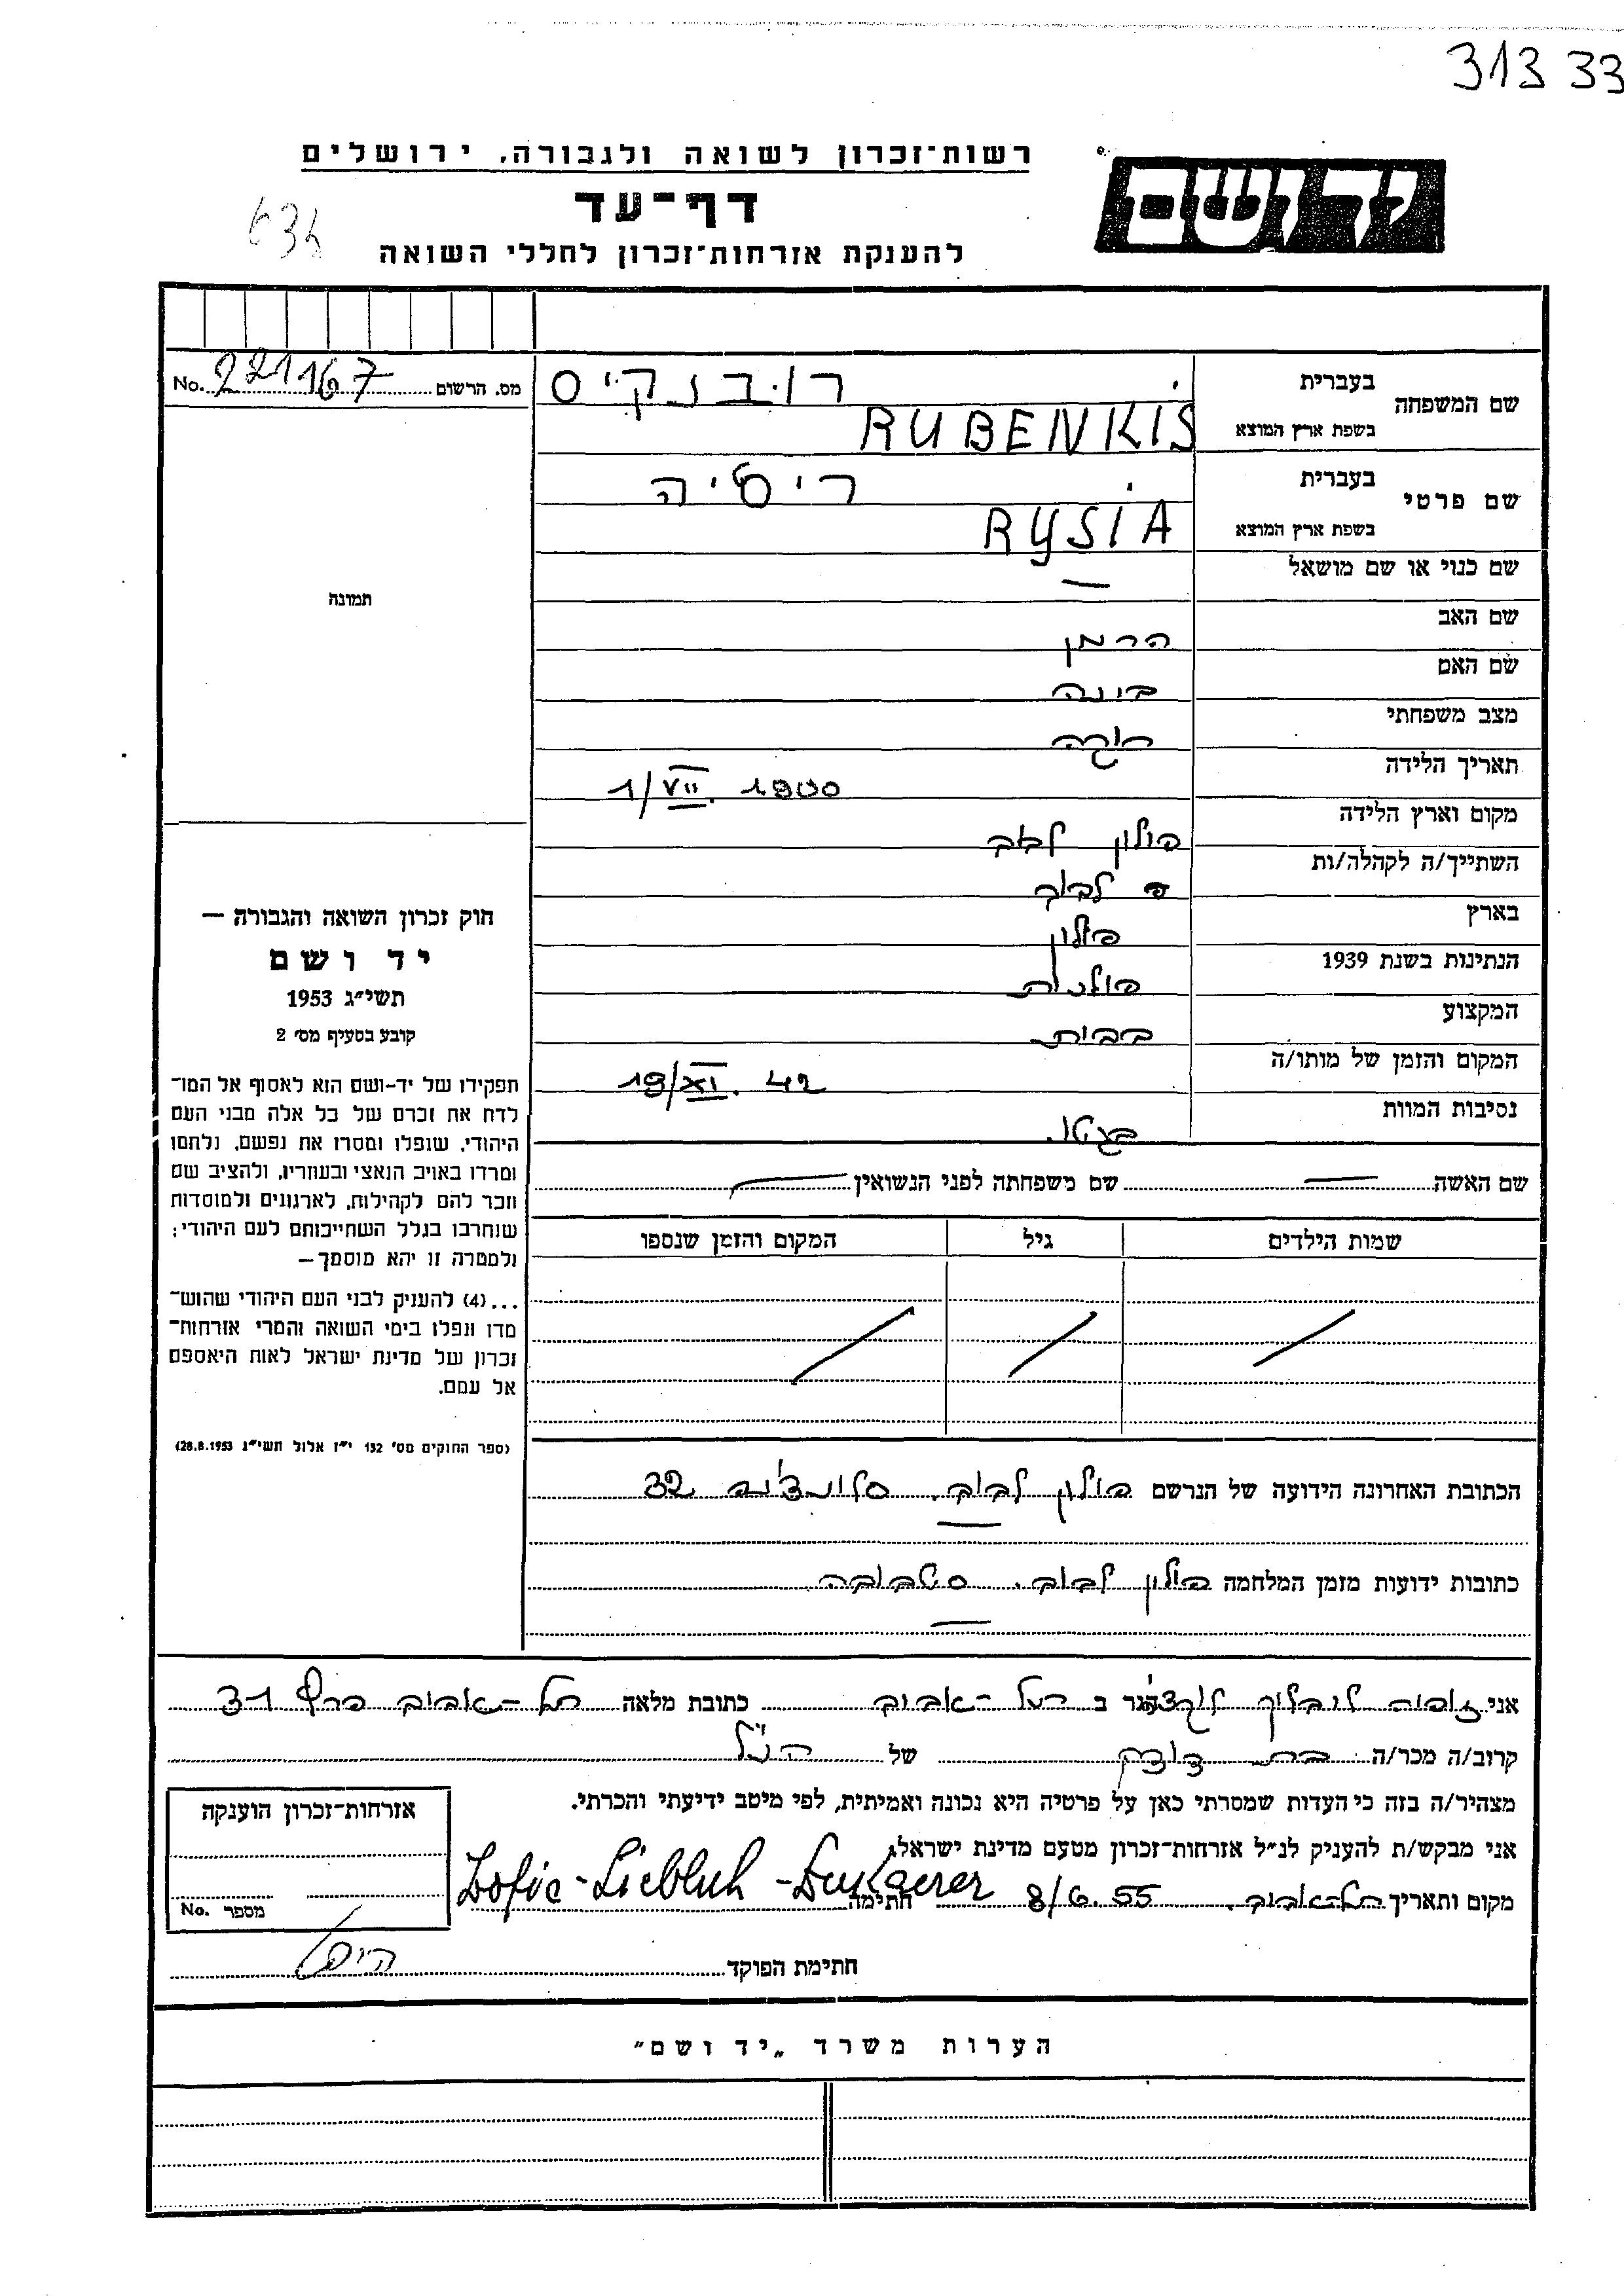 313 33
רשות־זכרון לשואה ולגבורה, ירושלים
יד ושם
דף־עד
634
להענקת אזרחות־זכרון לחללי השואה
שם המשפחה
בעברית רובנקיס
בשפת ארץ המוצא RUBENKIS
מס. הרשום No. 221167
שם פרטי
בעברית ריסיה
בשפת ארץ המוצא RYSIA
שם כנוי או שם מושאל —
תמונה
שם האב הרמן
שם האם בינה
מצב משפחתי
תאריך הלידה 1/VII. 1900
מקום וארץ הלידה פולין לבוב
השתייך/ה לקהלה/ות לבוב
בארץ פולין
הנתינות בשנת 1939 פולנית
המקצוע בבית
המקום והזמן של מותו/ה 19/XI. 42
נסיבות המוות בגטו.
שם האשה — שם משפחתה לפני הנשואין —
שמות הילדים גיל המקום והזמן שנספו
חוק זכרון השואה והגבורה —
יד ושם
תשי״ג 1953
קובע בסעיף מס׳ 2
תפקידו של יד-ושם הוא לאסוף אל המו־
לדת את זכרם של כל אלה מבני העם
היהודי, שנפלו ומסרו את נפשם, נלחמו
ומרדו באויב הנאצי ובעוזריו, ולהציב שם
וזכר להם לקהילות, לארגונים ולמוסדות
שנחרבו בגלל השתייכותם לעם היהודי;
ולמטרה זו יהא מוסמך—
...(4) להעניק לבני העם היהודי שהוש־
מדו ונפלו בימי השואה והמרי אזרחות־
זכרון של מדינת ישראל לאות היאספם
אל עמם.
(ספר החוקים מס׳ 132 י״ז אלול תשי״ג 28.8.1953)
הכתובת האחרונה הידועה של הנרשם פולין לבוב. 32
כתובות ידועות מזמן המלחמה פולין לבוב.
אני הגר ב תל-אביב כתובת מלאה תל-אביב 31
קרוב/ה מכר/ה בת דודה של הנ״ל
מצהיר/ה בזה כי העדות שמסרתי כאן על פרטיה היא נכונה ואמיתית, לפי מיטב ידיעתי והכרתי.
אני מבקש/ת להעניק לנ״ל אזרחות־זכרון מטעם מדינת ישראל.
מקום ותאריך תל-אביב. 8/6. 55 חתימה Zofie-Liebluh-
אזרחות־זכרון הוענקה
מספר No.
חתימת הפוקד
הערות משרד „יד ושם״